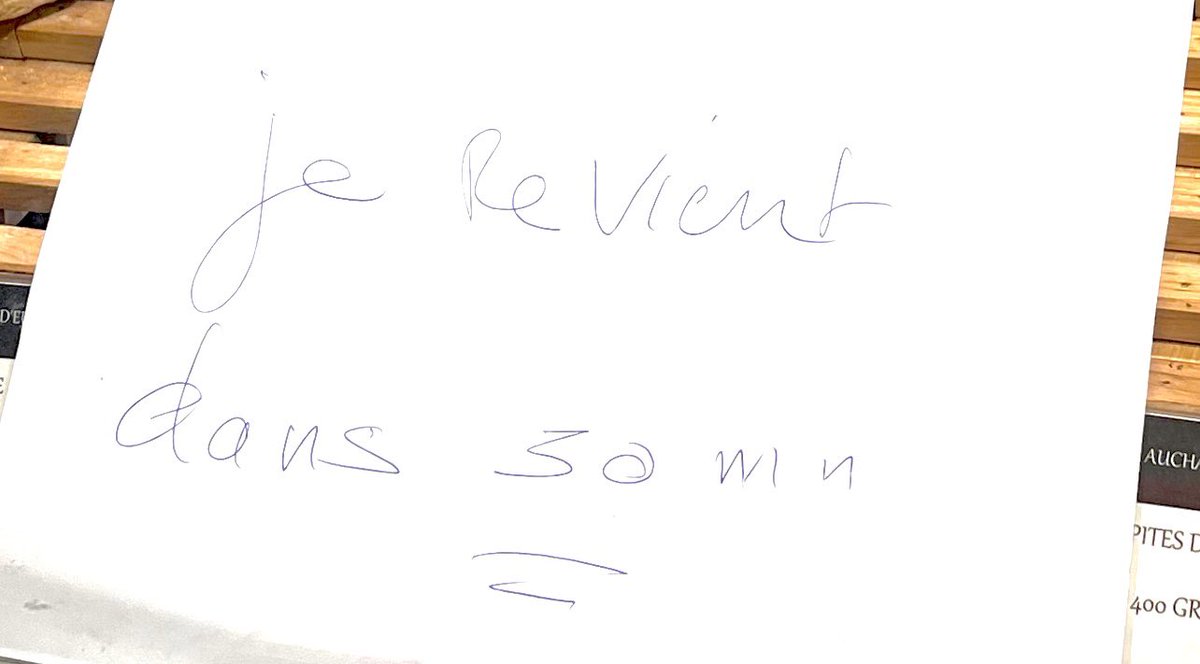 je Revient
dans 30 min
D'E
E
AUCHA
PITES D
400 GR